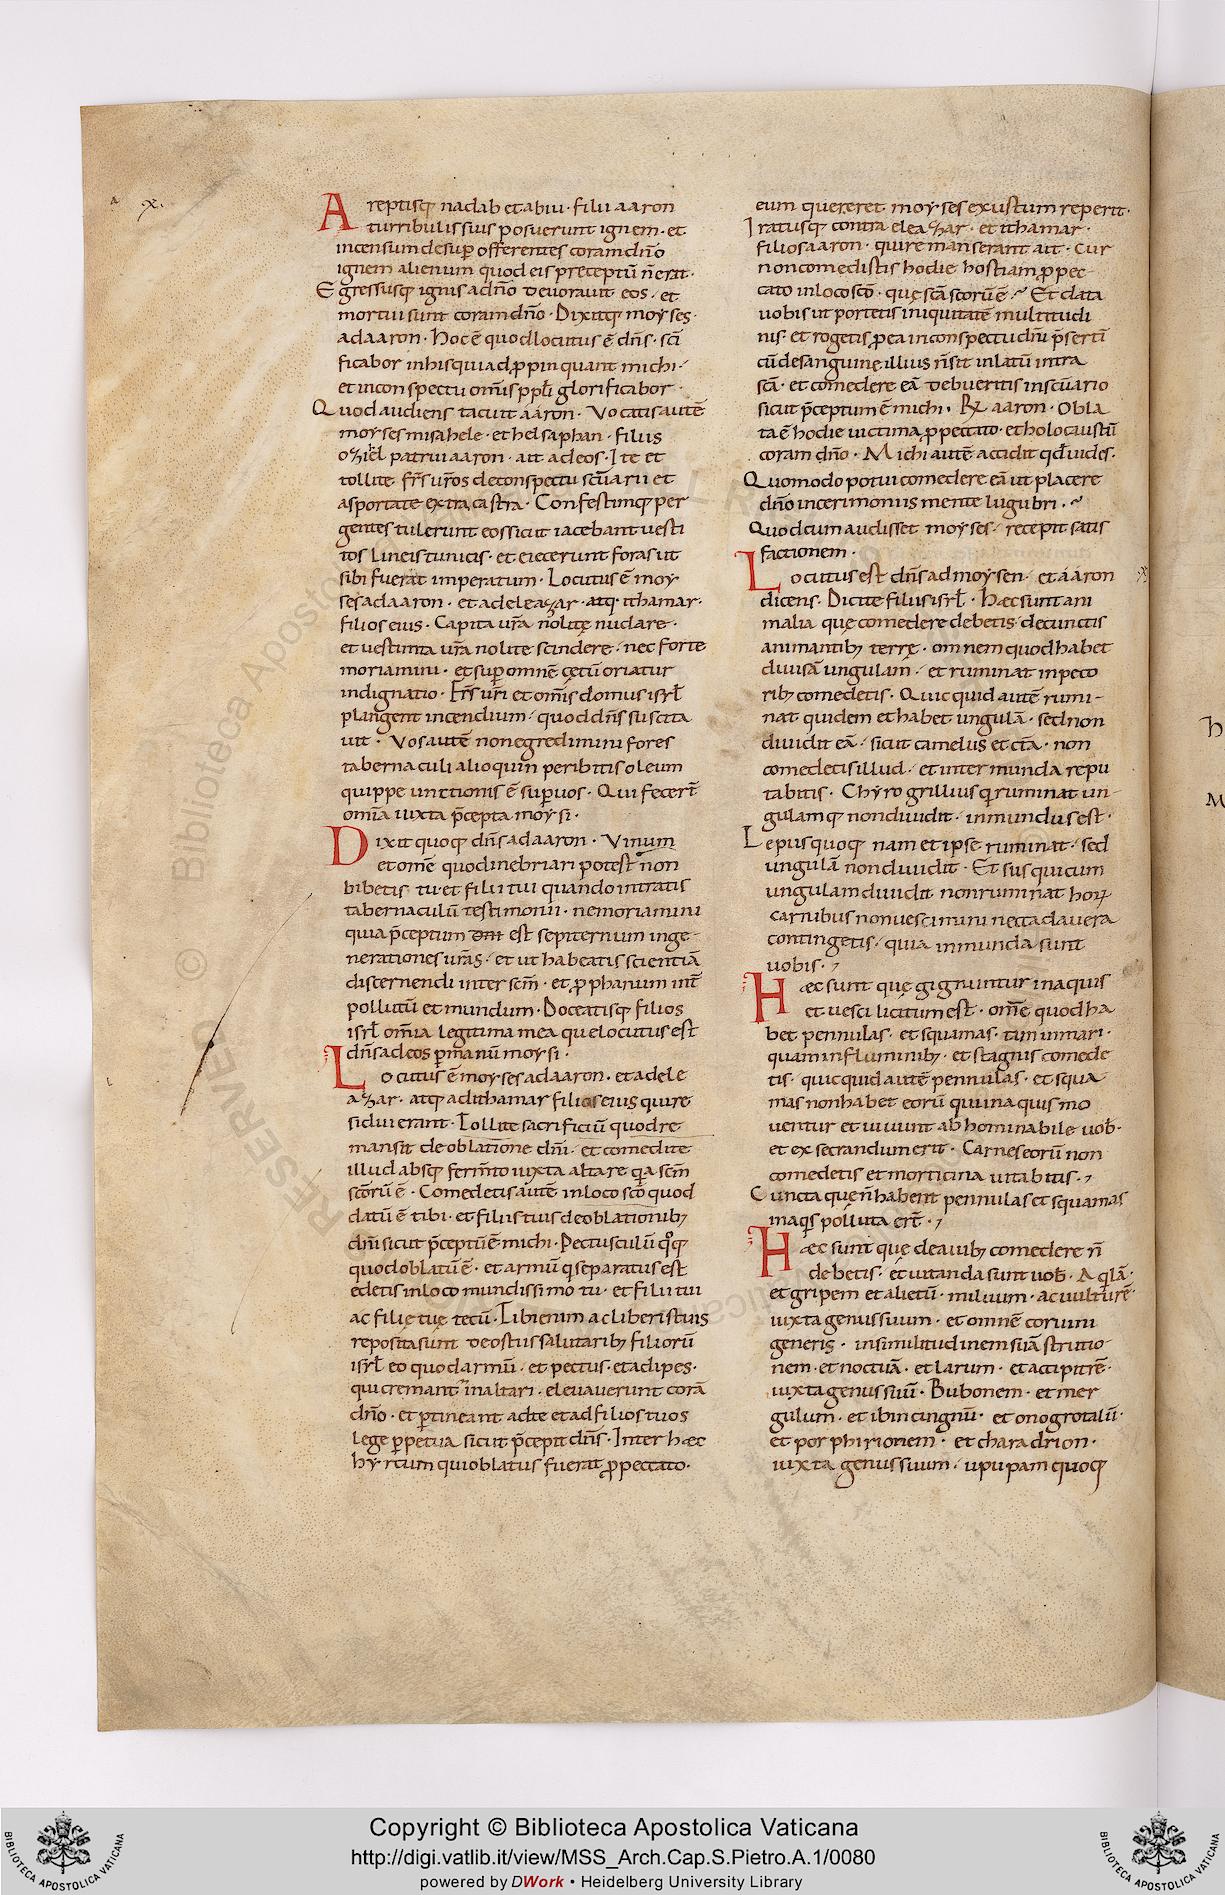 x.
Areptisq; nadab et abiu · filii aaron
turribulis suis posuerunt ignem · et
incensum desup̲ offerentes coram dn̄o
ignem alienum quod eis preceptū n̄ erat ·
Egressusq; ignis a dn̄o deuorauit eos · et
mortui sunt coram dn̄o · Dixitq; moyses ·
ad aaron · Hoc ē quod locutus ē dn̄s · sc̄i
ficabor in his qui adp̲pinquant michi ·
et in conspectu om̄is pp̄li glorificabor ·
Quod audiens tacuit aáron · Vocatis autē
moyses misahele · et helsaphan · filiis
ozihel patrui aaron · ait ad eos · Ite et
tollite fr̄s ur̄os de conspectu sc̄uarii et
asportate extra castra · Confestimq; per
gentes tulerunt eos sicut iacebant uesti
tos lineis tunicis · et eiecerunt foras ut
sibi fuerat imperatum · Locutus ē moy
ses ad aaron · et ad eleazar · atq; ithamar ·
filios eius · Capita ur̄a nolite nudare ·
et uestimta ur̄a nolite scindere · nec forte
moriamini · et sup̲ omnē cętū oriatur
indignatio · Fr̄s ur̄i et om̄is domus isrl̄
plangent incendium · quod dn̄s suscita
uit · Vos autē non egredimini fores
tabernaculi alioquin peribitis oleum
quippe unctionis ē sup̲ uos · Qui fecer̄t
om̄ia iuxta p̄cepta moysi ·
Dixit quoq; dn̄s ad aaron · Vinum
et om̄e quod inebriari potest non
bibetis tu et filii tui quando intratis
tabernaculū testimonii · ne moriamini
quia p̄ceptum est sepiternum in ge
nerationes ur̄as · et ut habeatis scientiā
discernendi inter sc̄m · et p̲phanum int̄
pollutū et mundum · Doceatisq; filios
isrl̄ om̄ia legitima mea que locutus est
dn̄s ad eos p̲ manū moysi ·
Locutus ē moyses ad aaron · et ad ele
azar · atq; ad ithamar filios eius qui re
sidui erant · Tollite sacrificiū quod re
mansit de oblatione dn̄i · et comedite
illud absq; ferm̄to iuxta altare q̲a sc̄m
sc̄orū ē · Comedetis autē in loco sc̄o quod
datū ē tibi · et filiis tuis de oblationib;
dn̄i sicut p̄ceptū ē michi · Pectusculū q°q;
quod oblatū ē · et armū q̲ separatus est
edetis in loco mundissimo tu · et filii tui
ac filię tuę tecū · Tibi enim ac liberis tuis
reposita sunt de ostiis salutarib; filiorū
isrl̄ eo quod armū · et pectus · et adipes ·
qui cremant̃ in altari · eleuauerunt corā
dn̄o · et p̲tineant ad te et ad filios tuos
lege p̲petua sicut p̄cepit dn̄s · Inter hæc
hyrcum qui oblatus fuerat p̲ peccato ·
eum quereret moyses exustum reperit ·
Iratusq; contra eleazar · et ithamar ·
filios aaron · qui remanserant ait · Cur
non comedistis hodie hostiam p̲ pec
cato in loco sc̄o · quę sc̄a sc̄orū ē · Et data
uobis ut portetis iniquitatē multitudi
nis · et rogetis p̲ ea in conspectu dn̄i p̄serti
cū de sanguine illius n̄ sit inlatū intra
sc̄a · et comedere eā debueritis in sc̄uario
sicut p̄ceptum ē michi · R̲ aaron · Obla
ta ē hodie uictima p̲ peccato · et holocaustū
coram dn̄o · Michi autē accidit qd̄ uides ·
Quomodo potui comedere eā ut placere
dn̄o in cerimoniis mente lugubri ·
Quod cum audisset moyses · recepit satis
factionem ·
Locutus est dn̄s ad moysen · et aáron
dicens · Dicite filiis isrl̄ · Hæc sunt ani
malia quę comedere debetis · de cunctis
animantib; terrę · omnem quod habet
diuisā ungulam · et ruminat in peco
rib; comedetis · Quicquid autē rumi ·
nat quidem et habet ungulā · sed non
diuidit eā · sicut camelus et cet̄a · non
comedetis illud · et inter munda repu
tabitis · Chyrogrillius q̲ ruminat un
gulamq; non diuidit · inmundus est ·
Lepus quoq; nam et ipse ruminat · sed
ungulā non diuidit · Et sus qui cum
ungulam diuidit non ruminat hor̲
carnibus non uescimini nec cadauera
contingetis · quia inmunda sunt
uobis ·
Hæc sunt que gignuntur in aquis
et uesci licitum est · om̄e quod ha
bet pennulas · et squamas · tam in mari ·
quam in fluminib; · et stagnis comede
tis · quicquid autē pennulas · et squa
mas non habet eorū qui in aquis mo
uentur et uiuunt abhominabile uob ·
et exsecrandum erit · Carnes eorū non
comedetis et morticina uitabitis ·
Cuncta que n̄ habent pennulas et squamas
in aq̲s polluta er̄t ·
Hæc sunt que de auib; comedere n̄
debetis · et uitanda sunt uob̄ · Aq̲lā ·
et gripem et alietū · miluum · ac uulturē ·
iuxta genus suum · et omnē coruini
generis · in similitudinem suā strutio
nem · et noctuā · et larum · et accipitrē ·
iuxta genus suū · Bubonem · et mer
gulum · et ibin cingnū · et onogrotalū ·
et porphirionem · et charadrion ·
iuxta genus suum · upupam quoq;
Copyright © Biblioteca Apostolica Vaticana
http://digi.vatlib.it/view/MSS_Arch.Cap.S.Pietro.A.1/0080
powered by DWork • Heidelberg University Library
BIBLIOTECA APOSTOLICA VATICANA
BIBLIOTECA APOSTOLICA VATICANA